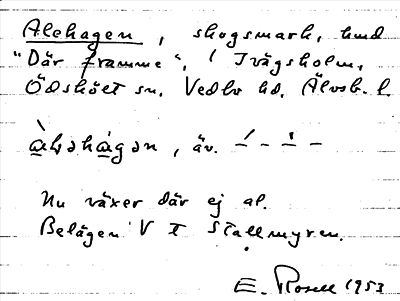 Alehagen, skogsmark, hmd
"Där framme", i Ivägsholm,
Ödskölt sn, Vedbo hd. Älvsb. l.
àləhágən, äv. –́–̍––
Nu växer där ej al.
Belägen V I Stallmyren.
E. Rosell 1953